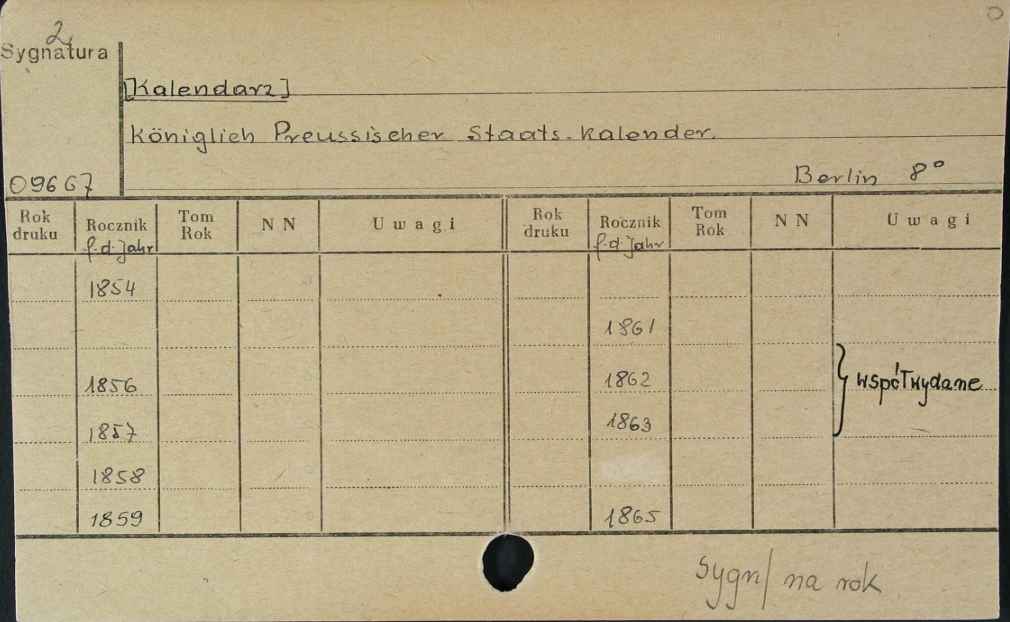 2
Sygnatura
[Kalendarz]
Königlich Preussischer Staats-Kalender.
09667
Berlin 8°
Rok druku Rocznik Tom Rok NN Uwagi Rok druku Rocznik Tom Rok NN Uwagi
f.d. Jahr f.d. Jahr
1854
1861
1856 1862 współwydane
1857 1863
1858
1859 1865
Sygn/ na rok